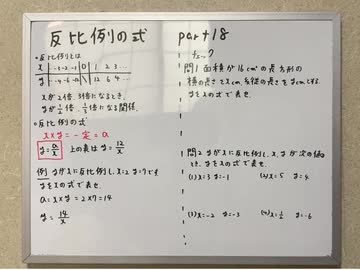 反比例の式 part18
・反比例とは
x | … -3 -2 -1 | 0 | 1 2 3 …
y | … -4 -6 -12 | ╳ | 12 6 4 …
xが2倍、3倍になるとき、
yが1/2倍、1/3倍になる関係。
・反比例の式
x×y=一定=a
y=a/x 上の表は y=12/x
例 yがxに反比例し、x=2 y=7です
yをxの式で表せ。
a=x×y=2×7=14
y=14/x
問1 面積が16cm²の長方形の
横の長さをxcm、縦の長さをycmとする。
yをxの式で表せ。
問2 yがxに反比例し、x、yが次の値の
とき、yをxの式で表せ。
(1) x=3 y=-1 (2) x=5 y=4
(3) x=-2 y=-3 (4) x=1/2 y=-6